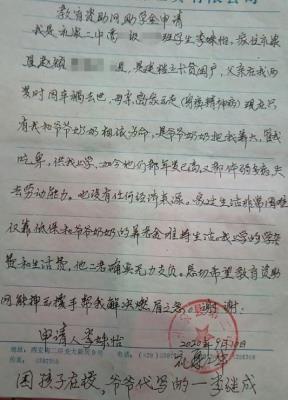 教育资助网助学金申请
我是礼泉二中高 级 班学生李姝怡,家住礼泉
县赵镇 ,是建档立卡贫困户,父亲在我两
岁时因车祸去世,母亲离家出走(有病精神病)现在只
有我和爷爷奶奶相依为命,是爷爷奶奶把我养大,
吃苦,供我上学,如今他们都年岁已高又都体弱多病失
去劳动能力。也没有任何经济来源。家庭生活非常困难
仅靠低保和爷爷奶奶的养老金维持生活。我上学的学杂
费和生活费,他二老确实无力支负,恳切希望教育资助
网能伸出援手帮我解决燃眉之急。谢谢!
申请人李姝怡
2020年9月10日
因孩子在校,爷爷代写的一李继成